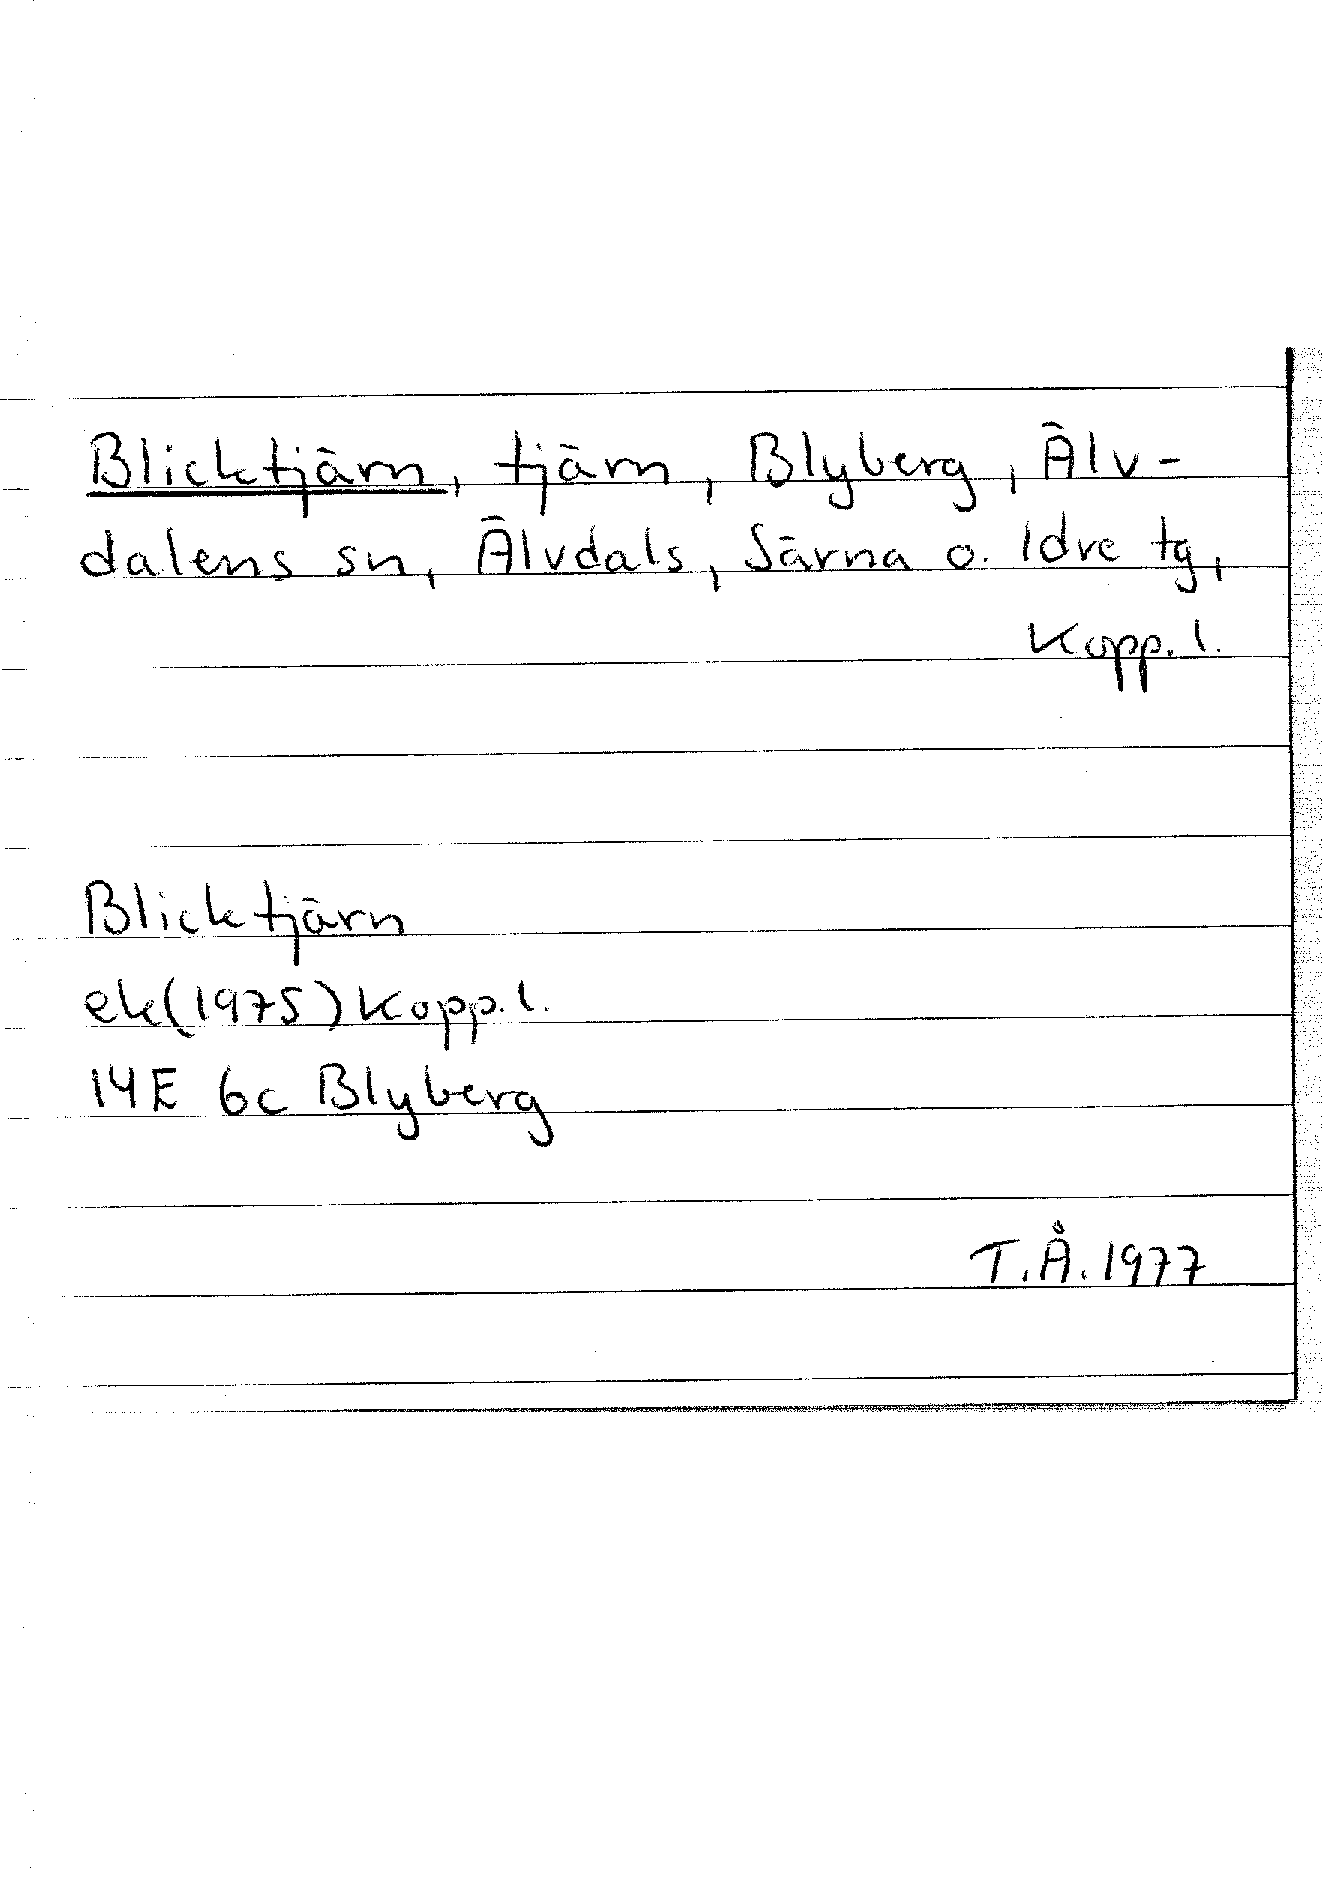 Blicktjärn, tjärn, Blyberg, Älv-
dalens sn, Älvdals, Särna o. Idre tg,
Kopp. l.
Blicktjärn
ek(1975) Kopp. l.
14E 6c Blyberg
T.Å. 1977